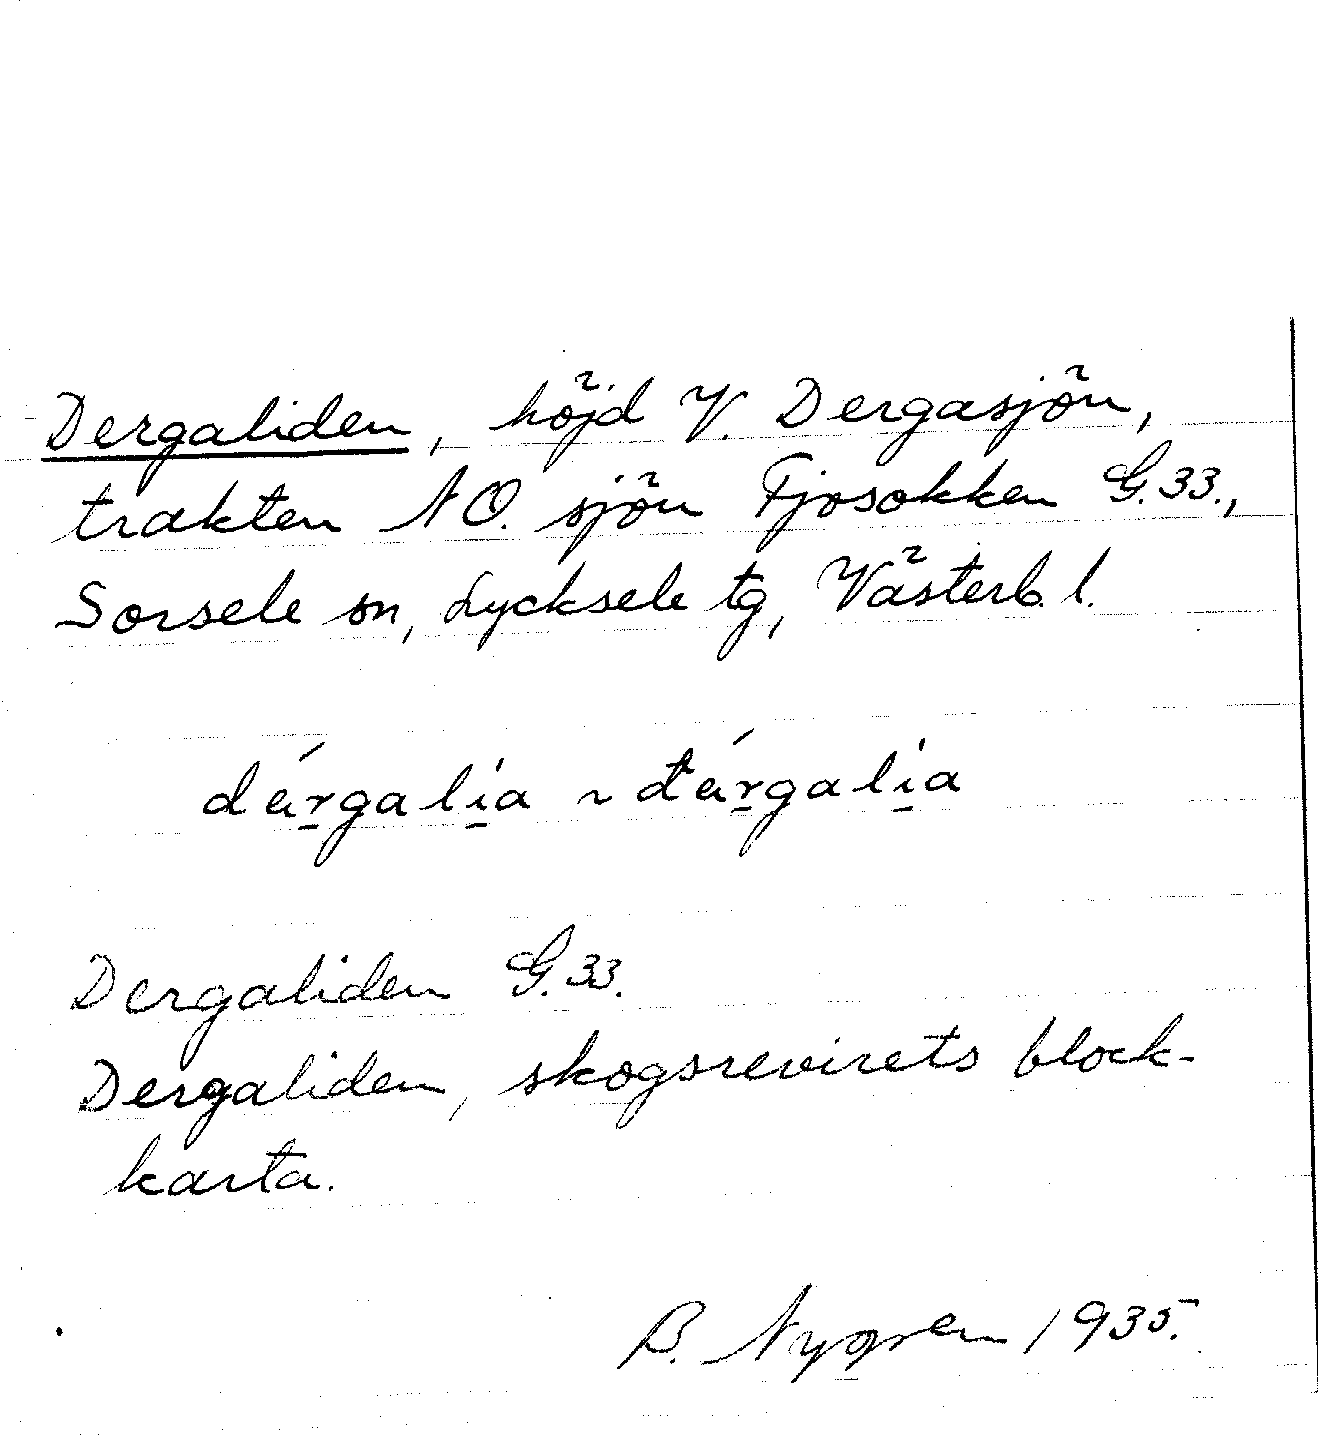 Dergaliden, höjd V. Dergasjön,
trakten NO. sjön Fjosokken G.33.,
Sorsele sn, Lycksele tg, Västerb. l.
dárgalìa ~ đárgalìa
Dergaliden G.33.
Dergaliden, skogsrevirets block-
karta.
B. Nygren 1935.